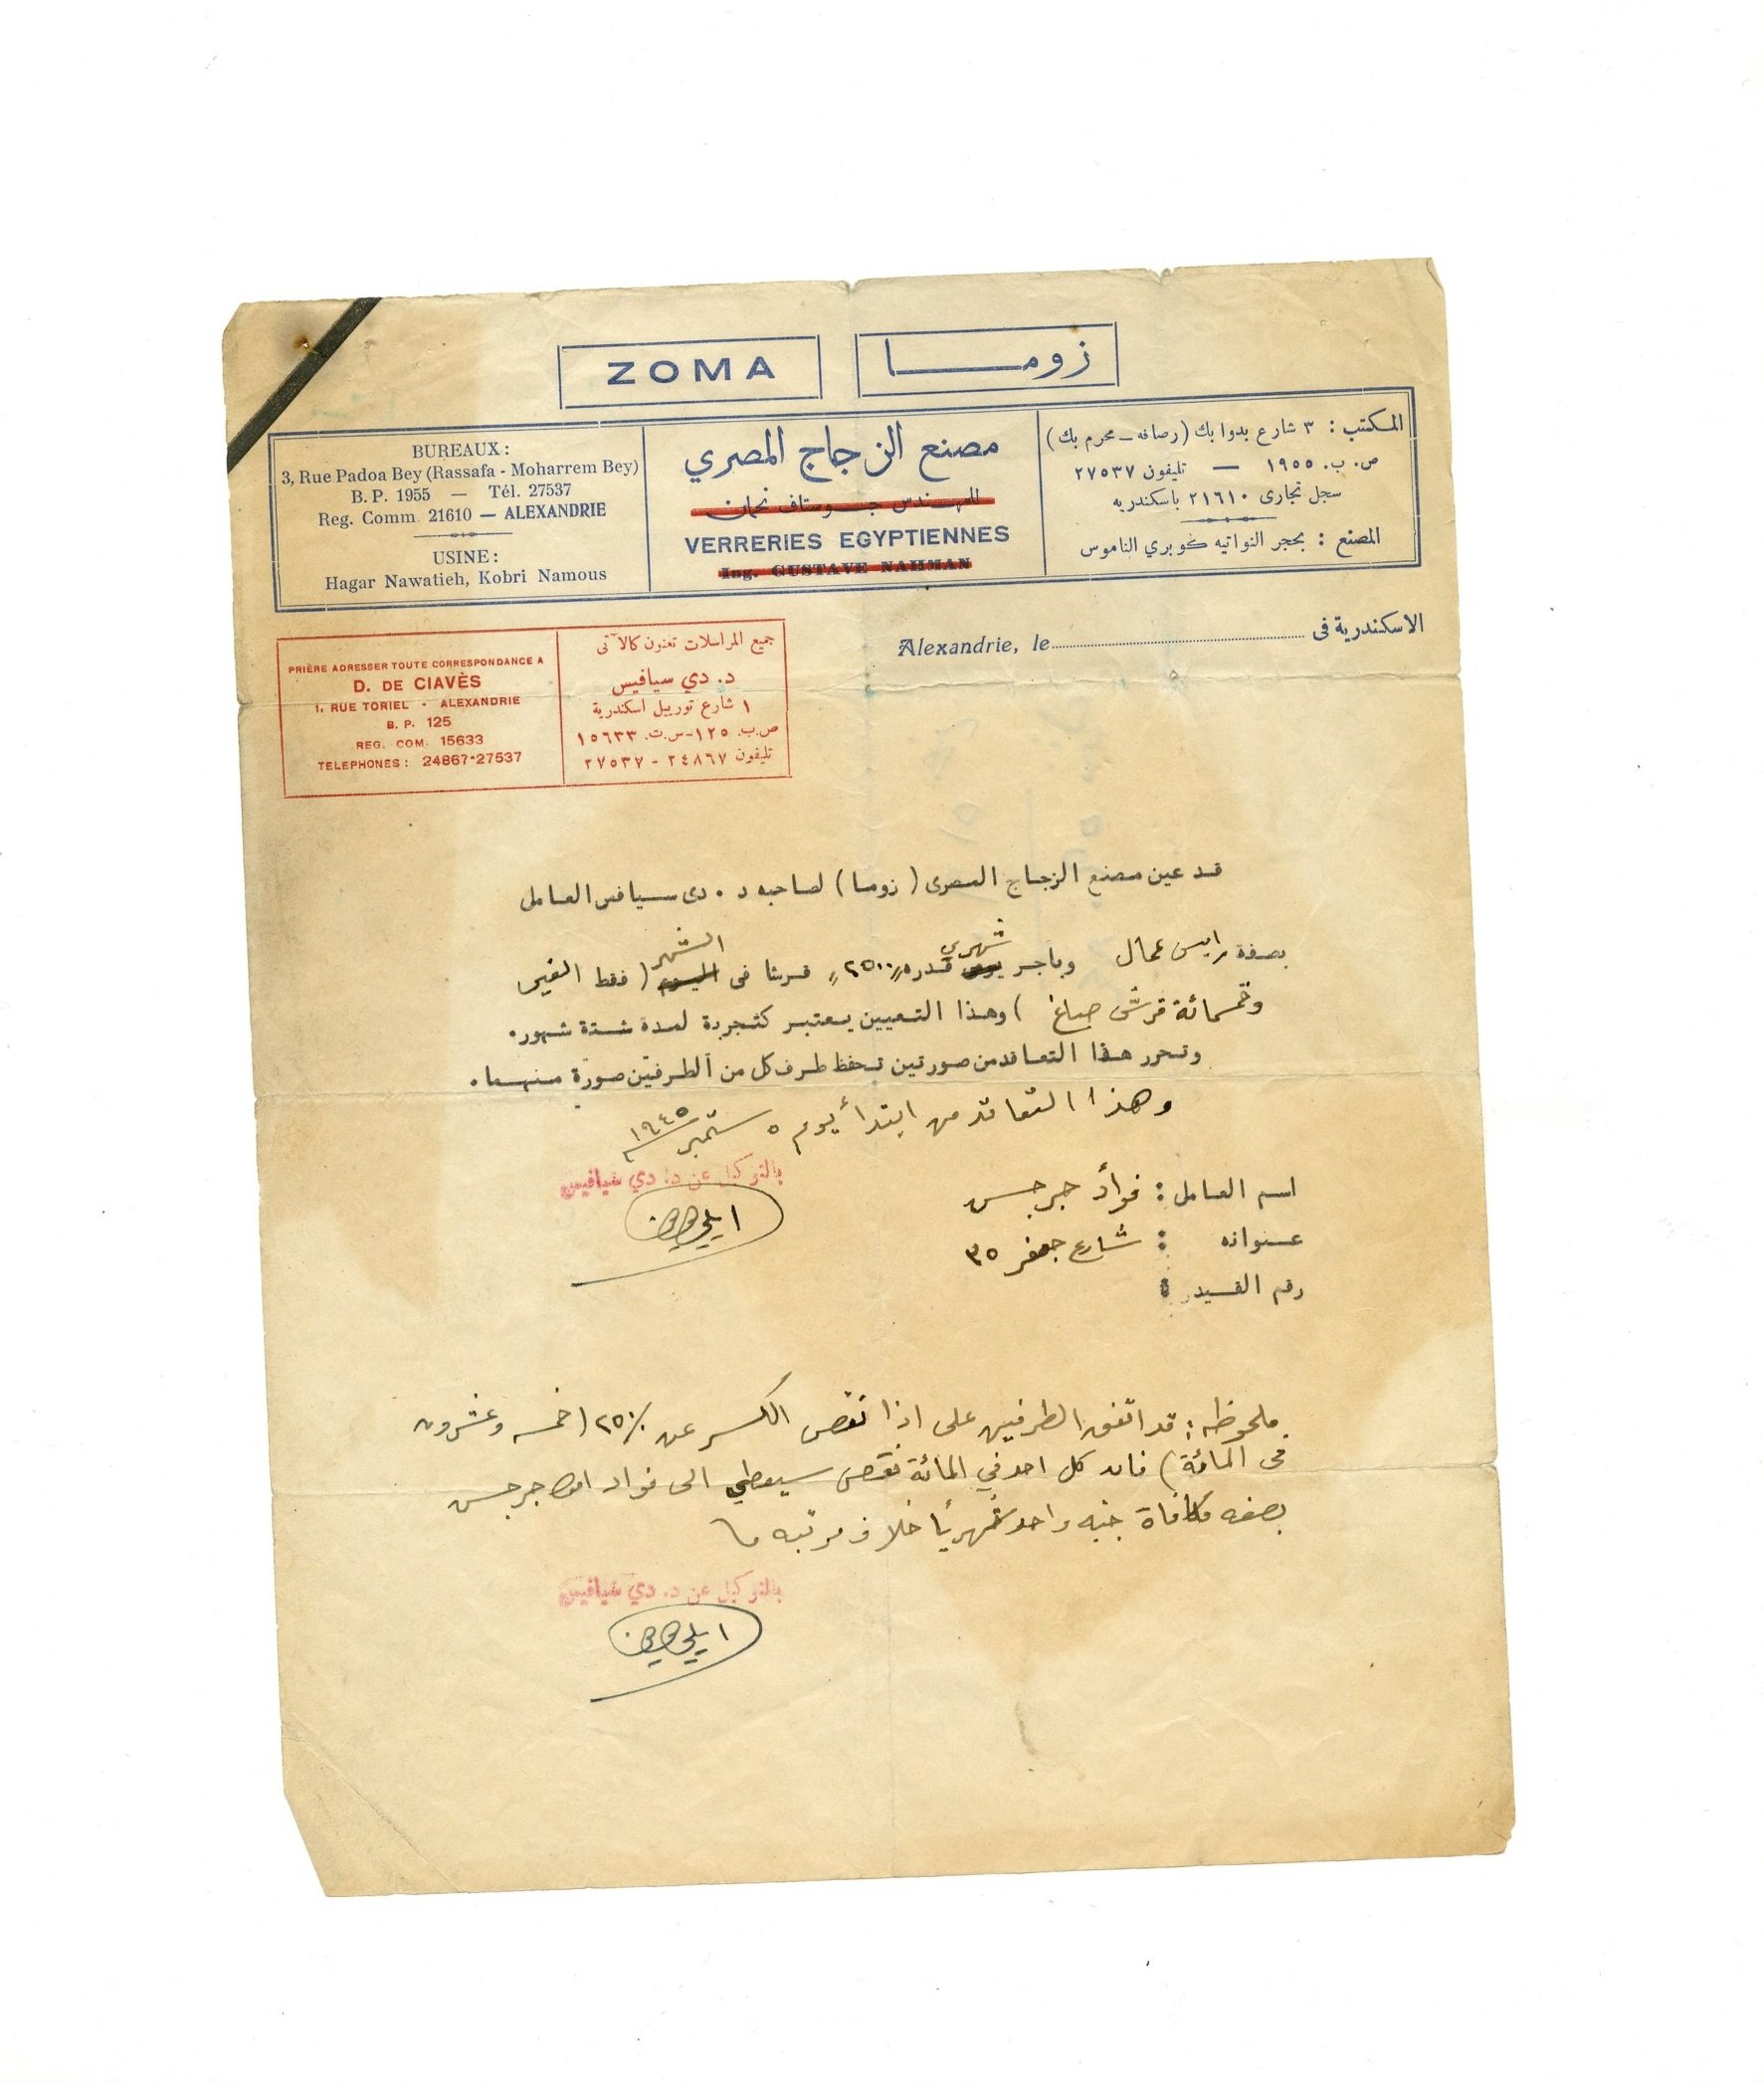 ZOMA
زوما
BUREAUX:
3, Rue Padoa Bey (Rassafa - Moharrem Bey)
B. P. 1955 — Tél. 27537
Reg. Comm. 21610 — ALEXANDRIE
USINE:
Hagar Nawatieh, Kobri Namous
مصنع الزجاج المصري
للمهندس جوستاف نحمان
VERRERIES EGYPTIENNES
Ing. GUSTAVE NAHMAN
المكتب : ٣ شارع بدوا بك (رصافه - محرم بك)
ص. ب. ١٩٥٥ — تليفون ٢٧٥٣٧
سجل تجارى ٢١٦١٠ باسكندريه
المصنع : بحجر النواتيه كوبري الناموس
Alexandrie, le
الاسكندرية فى
PRIÈRE ADRESSER TOUTE CORRESPONDANCE A
D. DE CIAVÈS
1, RUE TORIEL - ALEXANDRIE
B. P. 125
REG. COM. 15633
TELEPHONES : 24867-27537
جميع المراسلات تعنون كالآتى
د. دي سيافيس
١ شارع تورييل اسكندرية
ص.ب. ١٢٥-س.ت. ١٥٦٣٣
تليفون ٢٤٨٦٧ - ٢٧٥٣٧
قد عين مصنع الزجاج المصرى ( زوما ) لصاحبه د . دى سيافس العامل
شهري الشهر
بصفة رايس عمال وباجر يومى قدره ٢٥٠٠ قرشا فى اليوم ( فقط الفين
وخمسمائة قرش صاغ ) وهذا التعيين يعتبر كتجربة لمدة ستة شهور .
وتحرر هذا التعاقد من صورتين تحفظ طرف كل من الطرفين صورة منهما .
وهذا التعاقد من ابتدأ يوم ٥ ستمبر ١٩٤٥
بالتوكيل عن د. دي سيافيس
اسم العامل : فوأد جرجس
عنوانه : شارع جعفر ٣٥
رقم القيد :
ملحوظه : قد اتفق الطرفين على اذا نقص الكسر عن ٢٥٪ ( خمسه وعشرون
فى المائة ) فان كل احد في المائة نقص سيعطي الى فواد جرجس
بصفه مكافاة جنيه واحد شهريأ خلاف مرتبه
بالتوكيل عن د. دي سيافيس